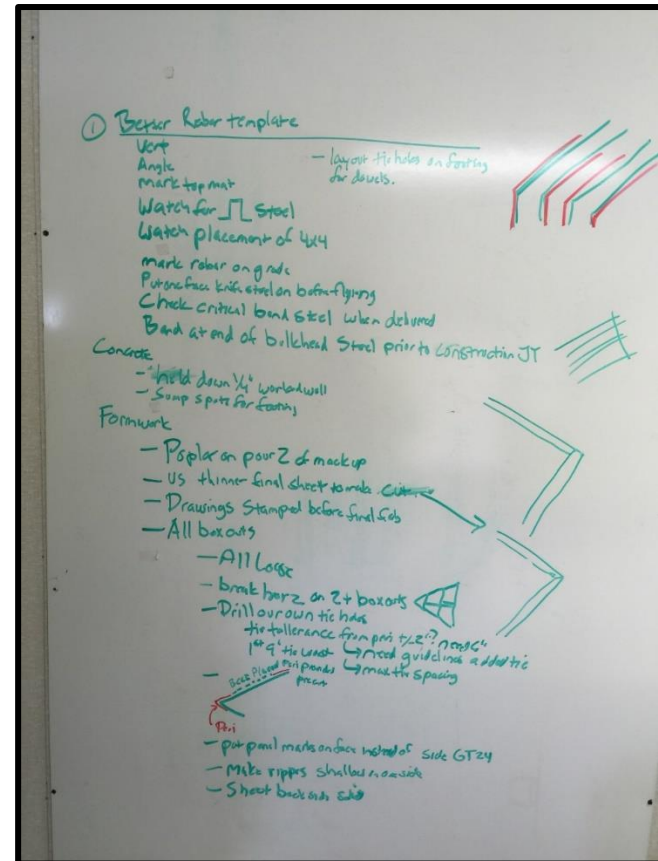 ① Better Rebar template
Vert
Angle
mark top mat
— layout tie holes on footing
for dowels.
Watch for steel
Watch placement of 4x4
mark rebar on grade
Put one face knife steel on before flying
Check critical bend steel when delivered
Band at end of bulkhead Steel prior to construction JT
Concrete
- hold down 1/4" worked well
- Sump spots for footing
Formwork
— Poplar on pour 2 of mockup
— US thinner final sheet to make
— Drawings Stamped before final fab
— All boxouts
— All Loose
- break horz on 2+ boxouts
- Drill our own tie holes
tie tollerance from peri +/- 2"?
1st 9' tie
need guidelines added tie
max tie spacing
— Back Placed Peri provides
precut
Peri
- put panel marks on face instead of side GT24
- Make rippers shallow on side
- Shoot back side